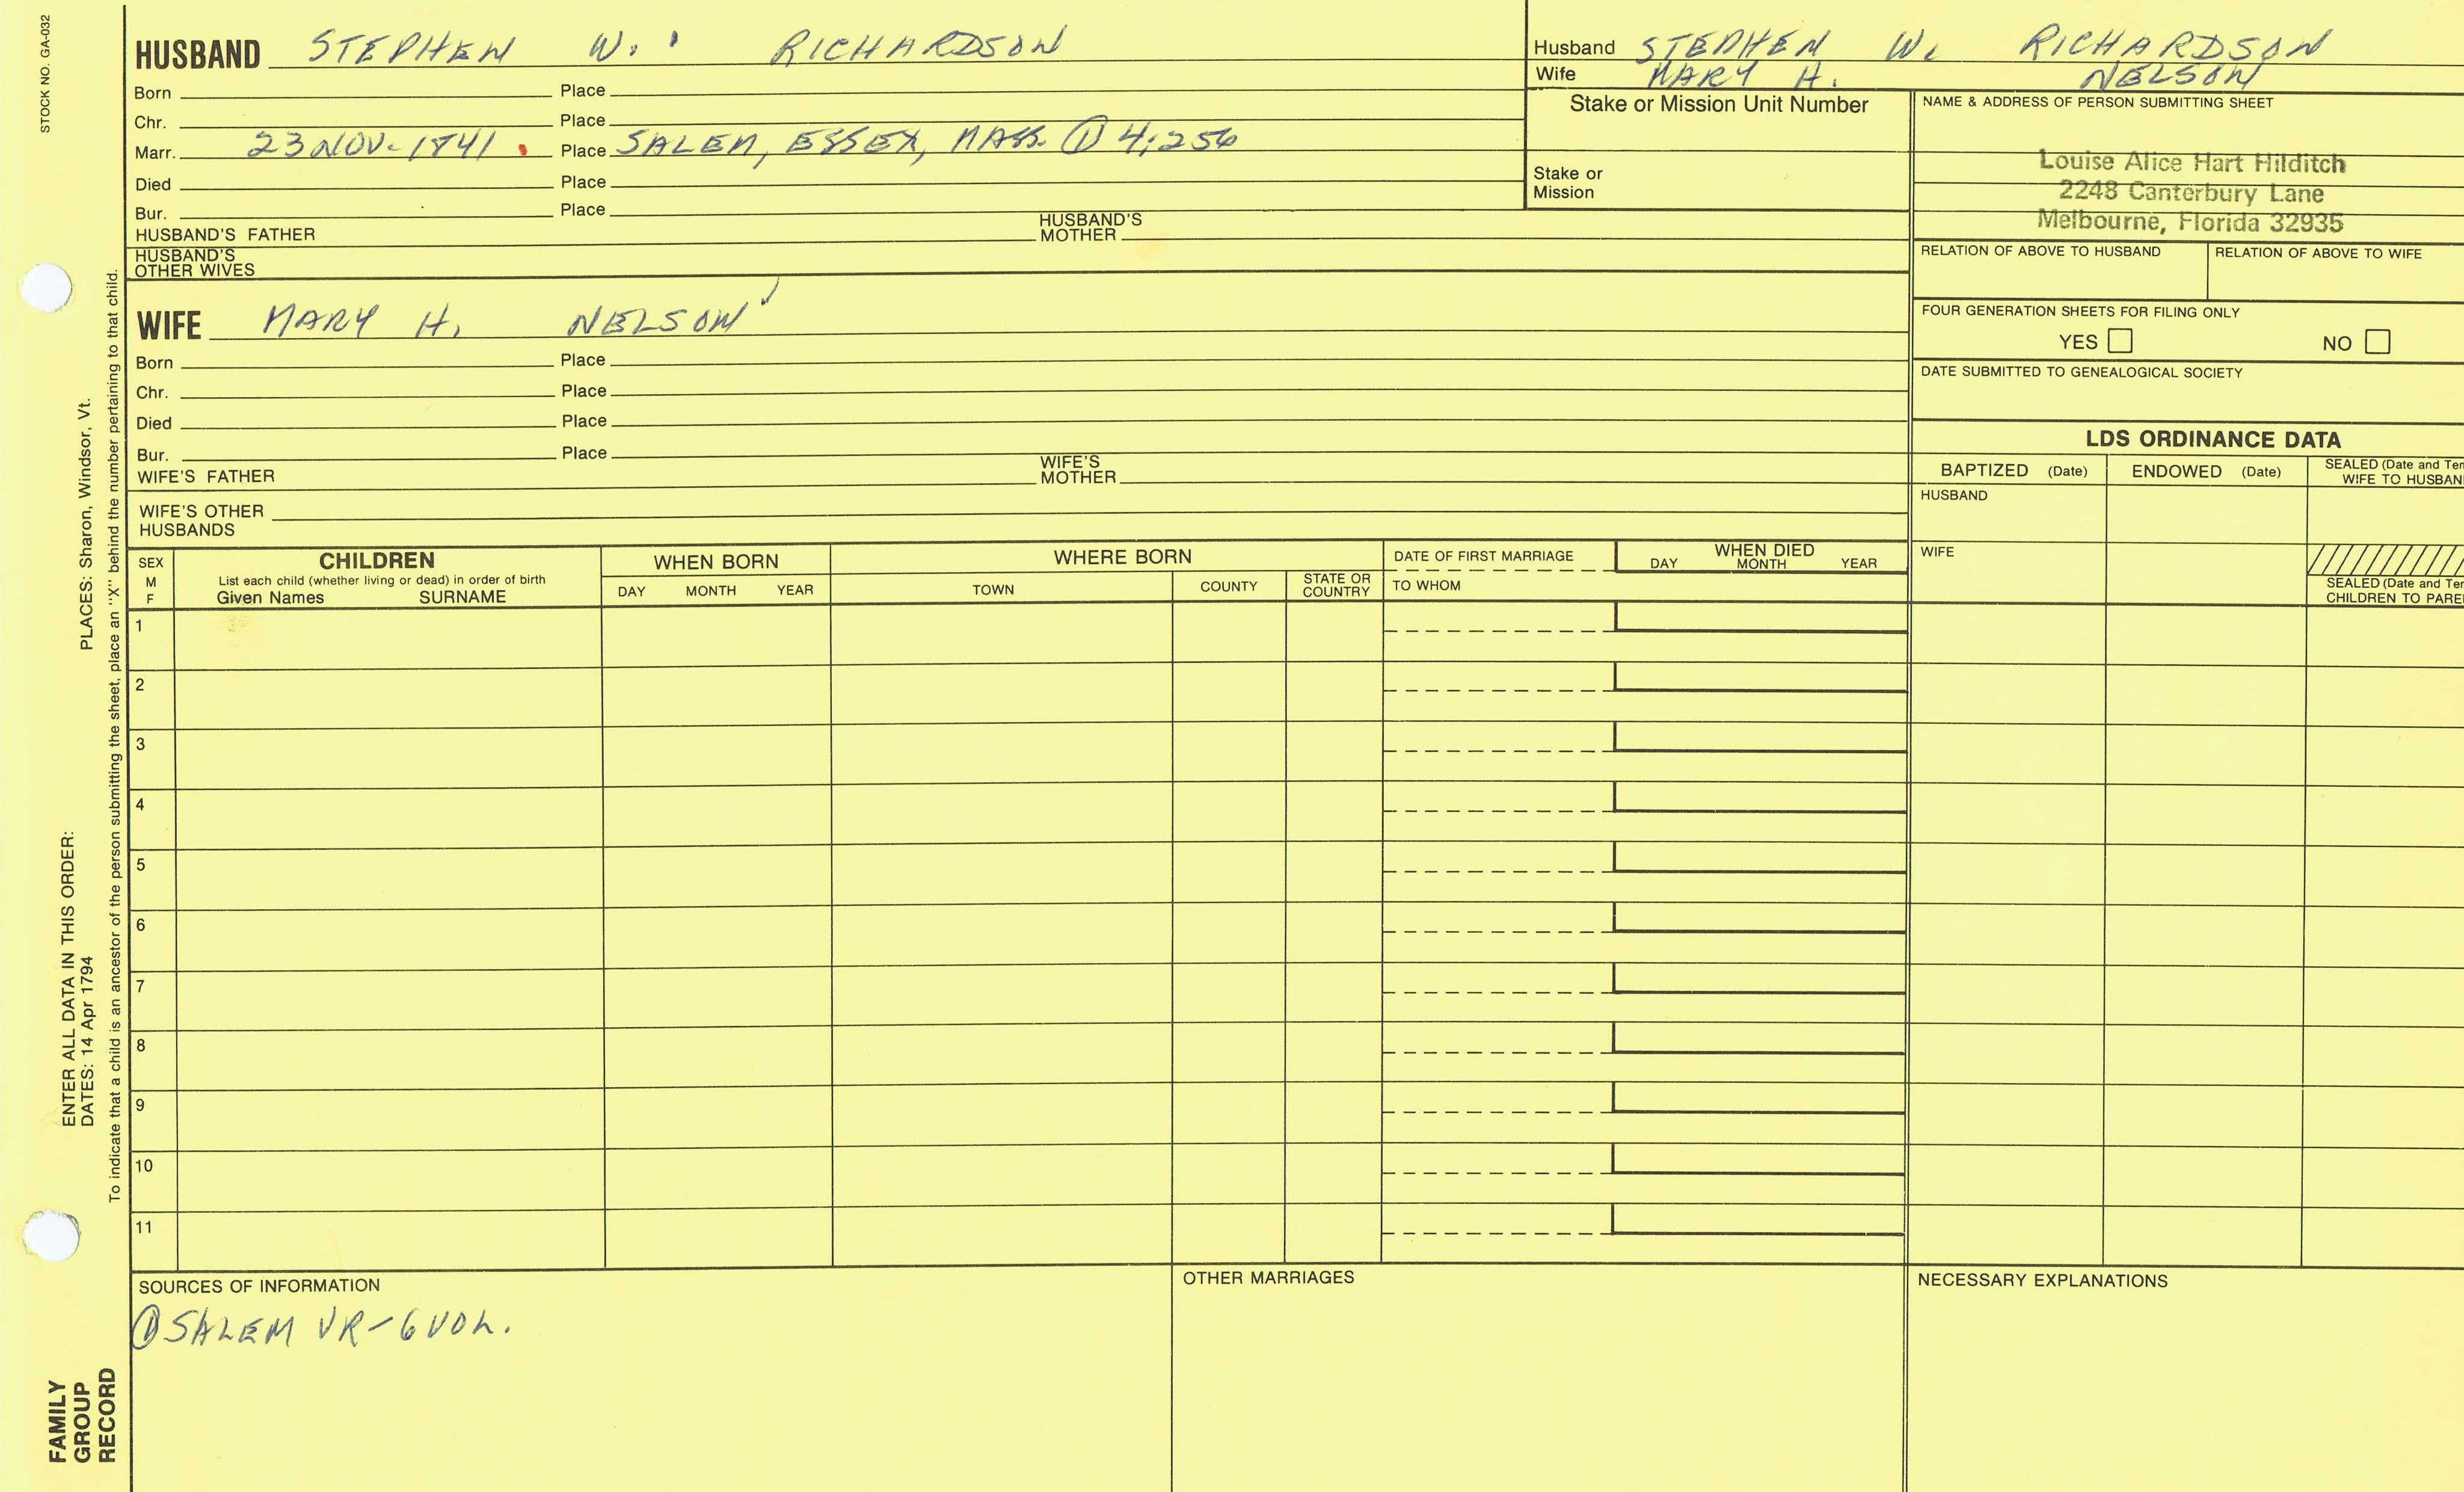 STOCK NO. GA-032
HUSBAND STEPHEN W. RICHARDSON
Born Place
Chr. Place
Marr. 23 NOV. 1841 . Place SALEM, ESSEX, MASS. ① 4;256
Died Place
Bur. Place
HUSBAND'S FATHER HUSBAND'S MOTHER
HUSBAND'S OTHER WIVES
WIFE MARY H. NELSON
Born Place
Chr. Place
Died Place
Bur. Place
WIFE'S FATHER WIFE'S MOTHER
WIFE'S OTHER HUSBANDS
Husband STEPHEN W. RICHARDSON
Wife MARY H. NELSON
Stake or Mission Unit Number
Stake or Mission
NAME & ADDRESS OF PERSON SUBMITTING SHEET
Louise Alice Hart Hilditch
2248 Canterbury Lane
Melbourne, Florida 32935
RELATION OF ABOVE TO HUSBAND RELATION OF ABOVE TO WIFE
FOUR GENERATION SHEETS FOR FILING ONLY
YES NO
DATE SUBMITTED TO GENEALOGICAL SOCIETY
LDS ORDINANCE DATA
BAPTIZED (Date) ENDOWED (Date) SEALED (Date and Tem
WIFE TO HUSBAN
HUSBAND
WIFE
SEALED (Date and Tem
CHILDREN TO PARE
SEX M F
CHILDREN
List each child (whether living or dead) in order of birth
Given Names SURNAME
WHEN BORN
DAY MONTH YEAR
WHERE BORN
TOWN COUNTY STATE OR COUNTRY
DATE OF FIRST MARRIAGE
TO WHOM
WHEN DIED
DAY MONTH YEAR
1
2
3
4
5
6
7
8
9
10
11
SOURCES OF INFORMATION
① SALEM VR - 6 VOL.
OTHER MARRIAGES
NECESSARY EXPLANATIONS
ENTER ALL DATA IN THIS ORDER:
DATES: 14 Apr 1794 PLACES: Sharon, Windsor, Vt.
To indicate that a child is an ancestor of the person submitting the sheet, place an "X" behind the number pertaining to that child.
FAMILY
GROUP
RECORD